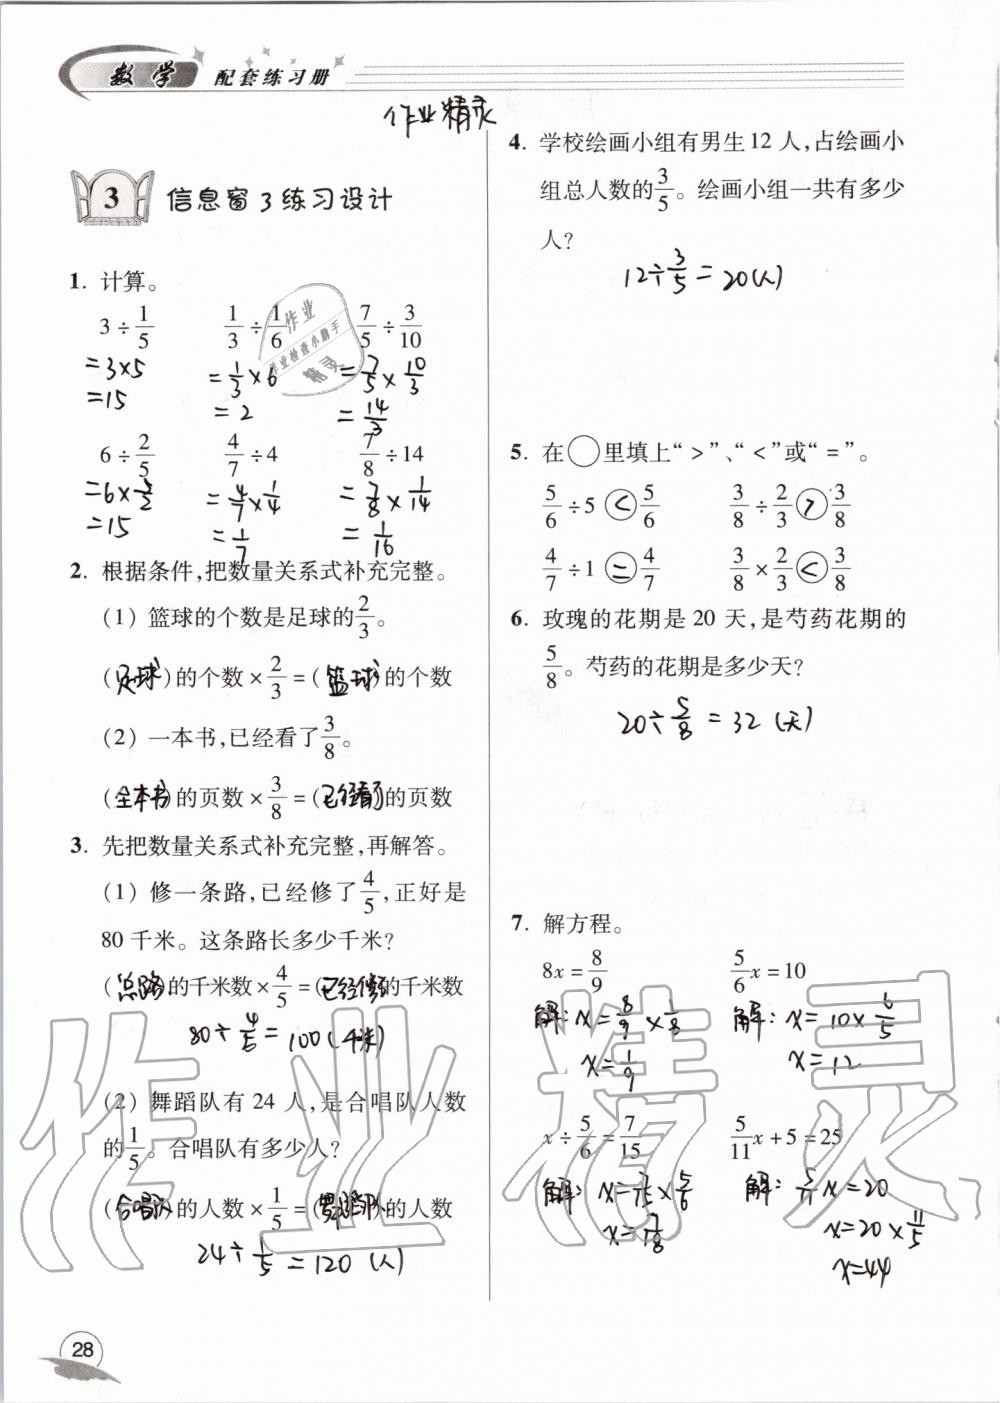 数学 配套练习册
作业精灵
3 信息窗3练习设计
1. 计算。
3÷1/5 1/3÷1/6 7/5÷3/10
=3×5 =1/3×6 =7/5×10/3
=15 =2 =14/3
6÷2/5 4/7÷4 7/8÷14
=6×5/2 =4/7×1/4 =7/8×1/14
=15 =1/7 =1/16
2. 根据条件,把数量关系式补充完整。
(1) 篮球的个数是足球的2/3。
(足球)的个数×2/3=(篮球)的个数
(2) 一本书,已经看了3/8。
(全本书)的页数×3/8=(已经看了)的页数
3. 先把数量关系式补充完整,再解答。
(1) 修一条路,已经修了4/5,正好是
80千米。这条路长多少千米?
(总路)的千米数×4/5=(已经修)的千米数
80÷4/5=100(千米)
(2) 舞蹈队有24人,是合唱队人数
的1/5。合唱队有多少人?
(合唱队)的人数×1/5=(舞蹈队)的人数
24÷1/5=120(人)
28
4. 学校绘画小组有男生12人,占绘画小
组总人数的3/5。绘画小组一共有多少
人?
12÷3/5=20(人)
5. 在○里填上“>”、“<”或“=”。
5/6÷5<5/6 3/8÷2/3>3/8
4/7÷1=4/7 3/8×2/3<3/8
6. 玫瑰的花期是20天,是芍药花期的
5/8。芍药的花期是多少天?
20÷5/8=32(天)
7. 解方程。
8x=8/9 5/6x=10
解:x=8/9×1/8 解:x=10×6/5
x=1/9 x=12
x÷5/6=7/15 5/11x+5=25
解:x=7/15×5/6 解:5/11x=20
x=7/18 x=20×11/5
x=44
作业精灵
作业
作业检查小助手
精灵